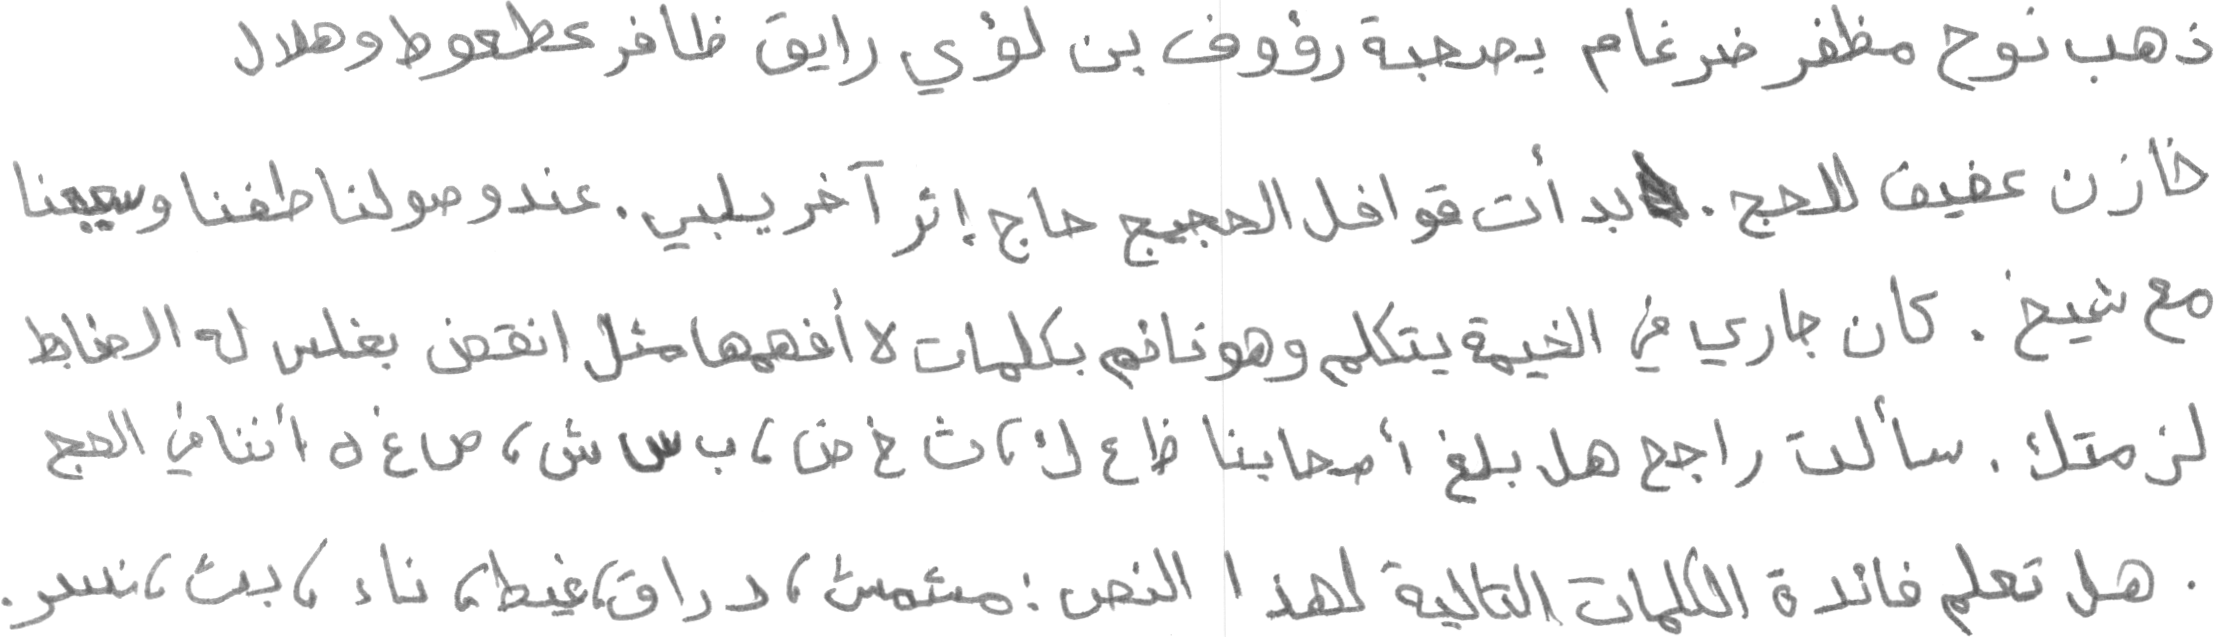 ذهب نوح مظفر ضرغام بصحبة رؤوف بن لؤي رايق ظافر عطعوط وهلال
خازن عفيف للحج . بدأت قوافل الحجيج حاج إثر آخر يلبي . عند وصولنا طفنا وسعينا
مع شيخ . كان جاري في الخيمة يتكلم وهو نائم بكلمات لا أفهمها مثل انقض بغلس له الضابط
لزمتك . سألت راجح هل بلغ أصحابنا ظ ع ك ، ث خ ض ، ب س ش ، ص غ ه أننا في الحج
. هل تعلم فائدة الكلمات التالية لهذا النص : مشمش ، دراق ، غيط ، ناء ، بث ، نسر .